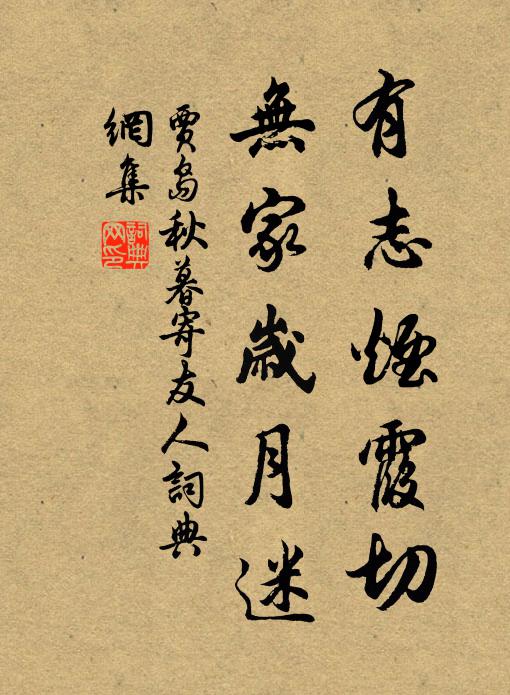 有志煙霞切
無家歲月迷
賈島秋暮寄友人詞典
網集
詞典
网印